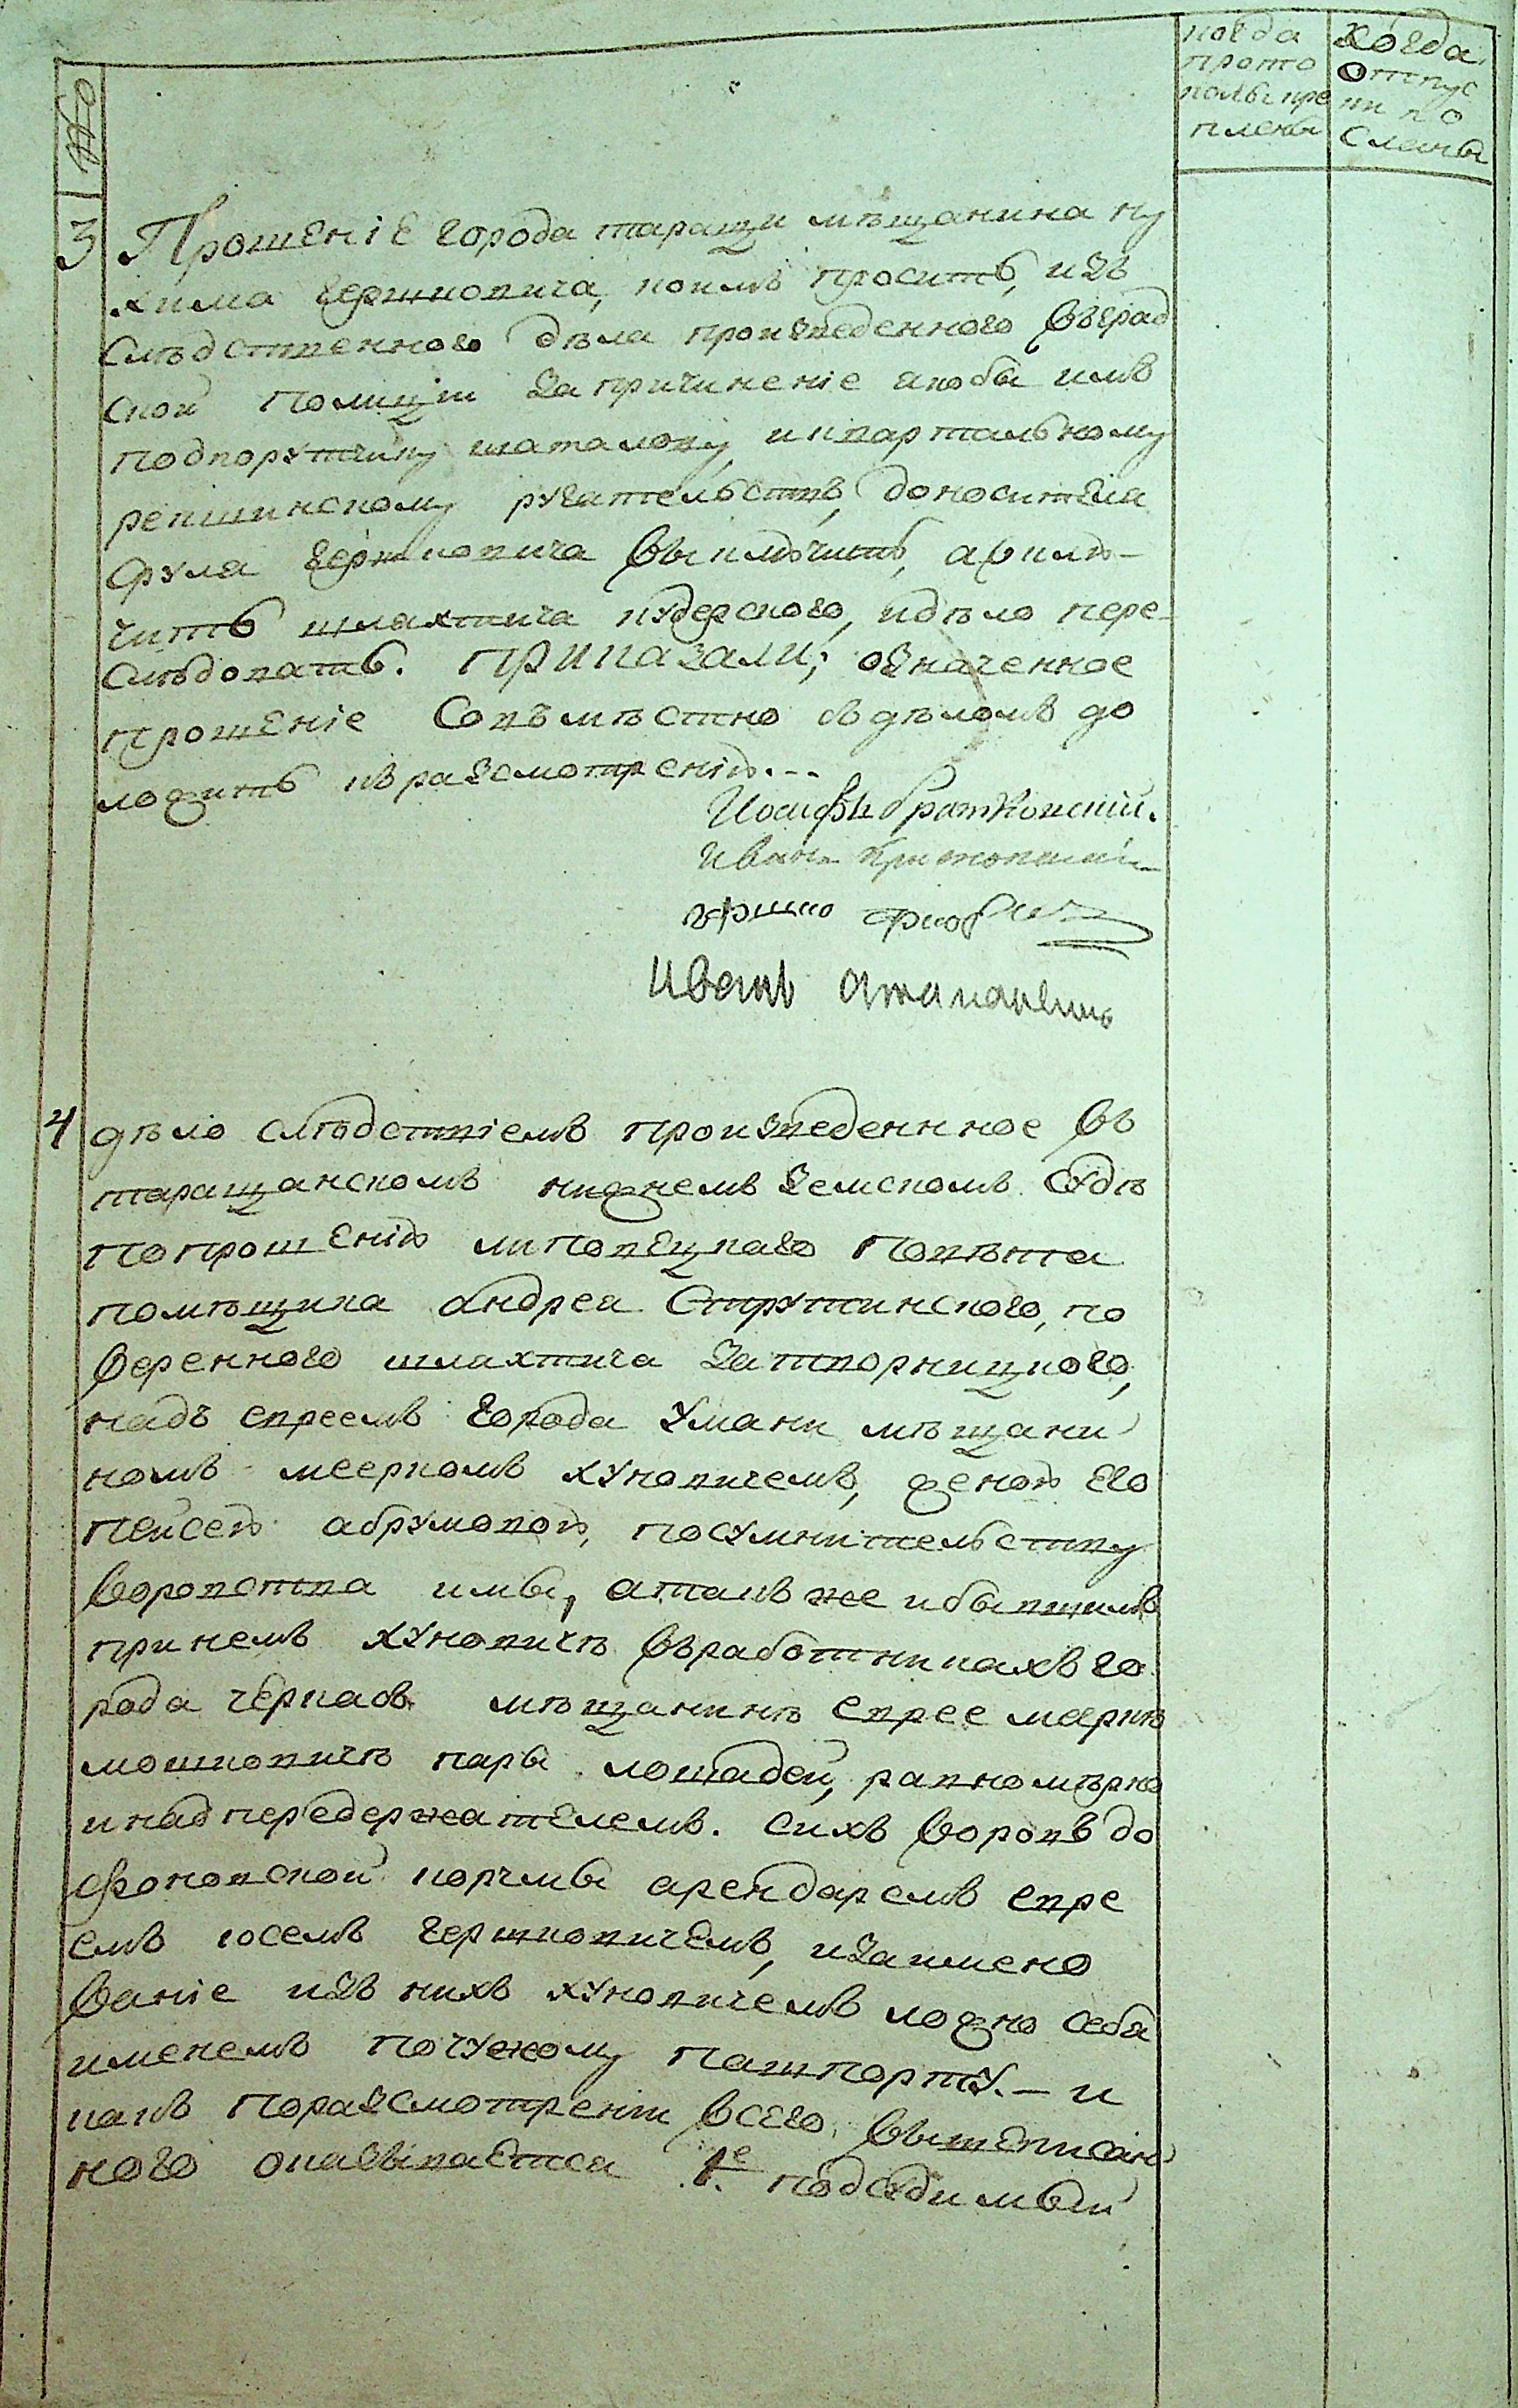 №
когда
прото
колы кре
плены
когда
отпус
ки по
сланы
3 Прошеніе города таращи мѣщанина ну
хима гершковича, коимъ проситъ, изъ
слѣдственного дѣла произведенного въ град
ской полиціи за причиненіе якобы имъ
подпорутчику шаталову, и квартальному
репшинскому ругательствъ, доносителя
срула гершковича выключить, а вклю-
чить шляхтича кудерского, и дѣло пере-
слѣдовать. приказали; означенное
прошеніе совъмѣстно съ дѣломъ до
ложить къ разсмотренію.--
Иосифъ братковскій.
Иванъ
гершко
Иванъ
4 дѣло слѣдствіемъ произведеннное въ
таращанскомъ нижнемъ земскомъ судѣ
по прошенію липовецкаго повѣта
помѣщика андрея Струтинского, по
веренного шляхтича затворницкого,
надъ евреемъ города Умани мѣщани
номъ мееркомъ хуновичемъ, женою его
пейсею абрумовою, по сумнительству
воровства имы, а такъ же и бывшимъ
при немъ хуновичѣ въ работникахъ го
рода черкасъ мѣщанинѣ еврее меркѣ
мошковичѣ пары лошадей, равномѣрно
и над передержателемъ. сихъ воровъ до
фоновской корчмы арендаремъ евре
емъ іосемъ гершковичемъ, и заимено
ваніе изъ нихъ хуновичемъ ложно себя
именемъ по чужому пашпорту. – и
какъ по разсмотреніи всего вышеписан
ного оказывается 1.е подсудимый